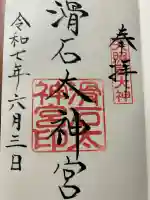 奉拝
滑石太神宮
滑石太
神宮印
令和七年六月三日